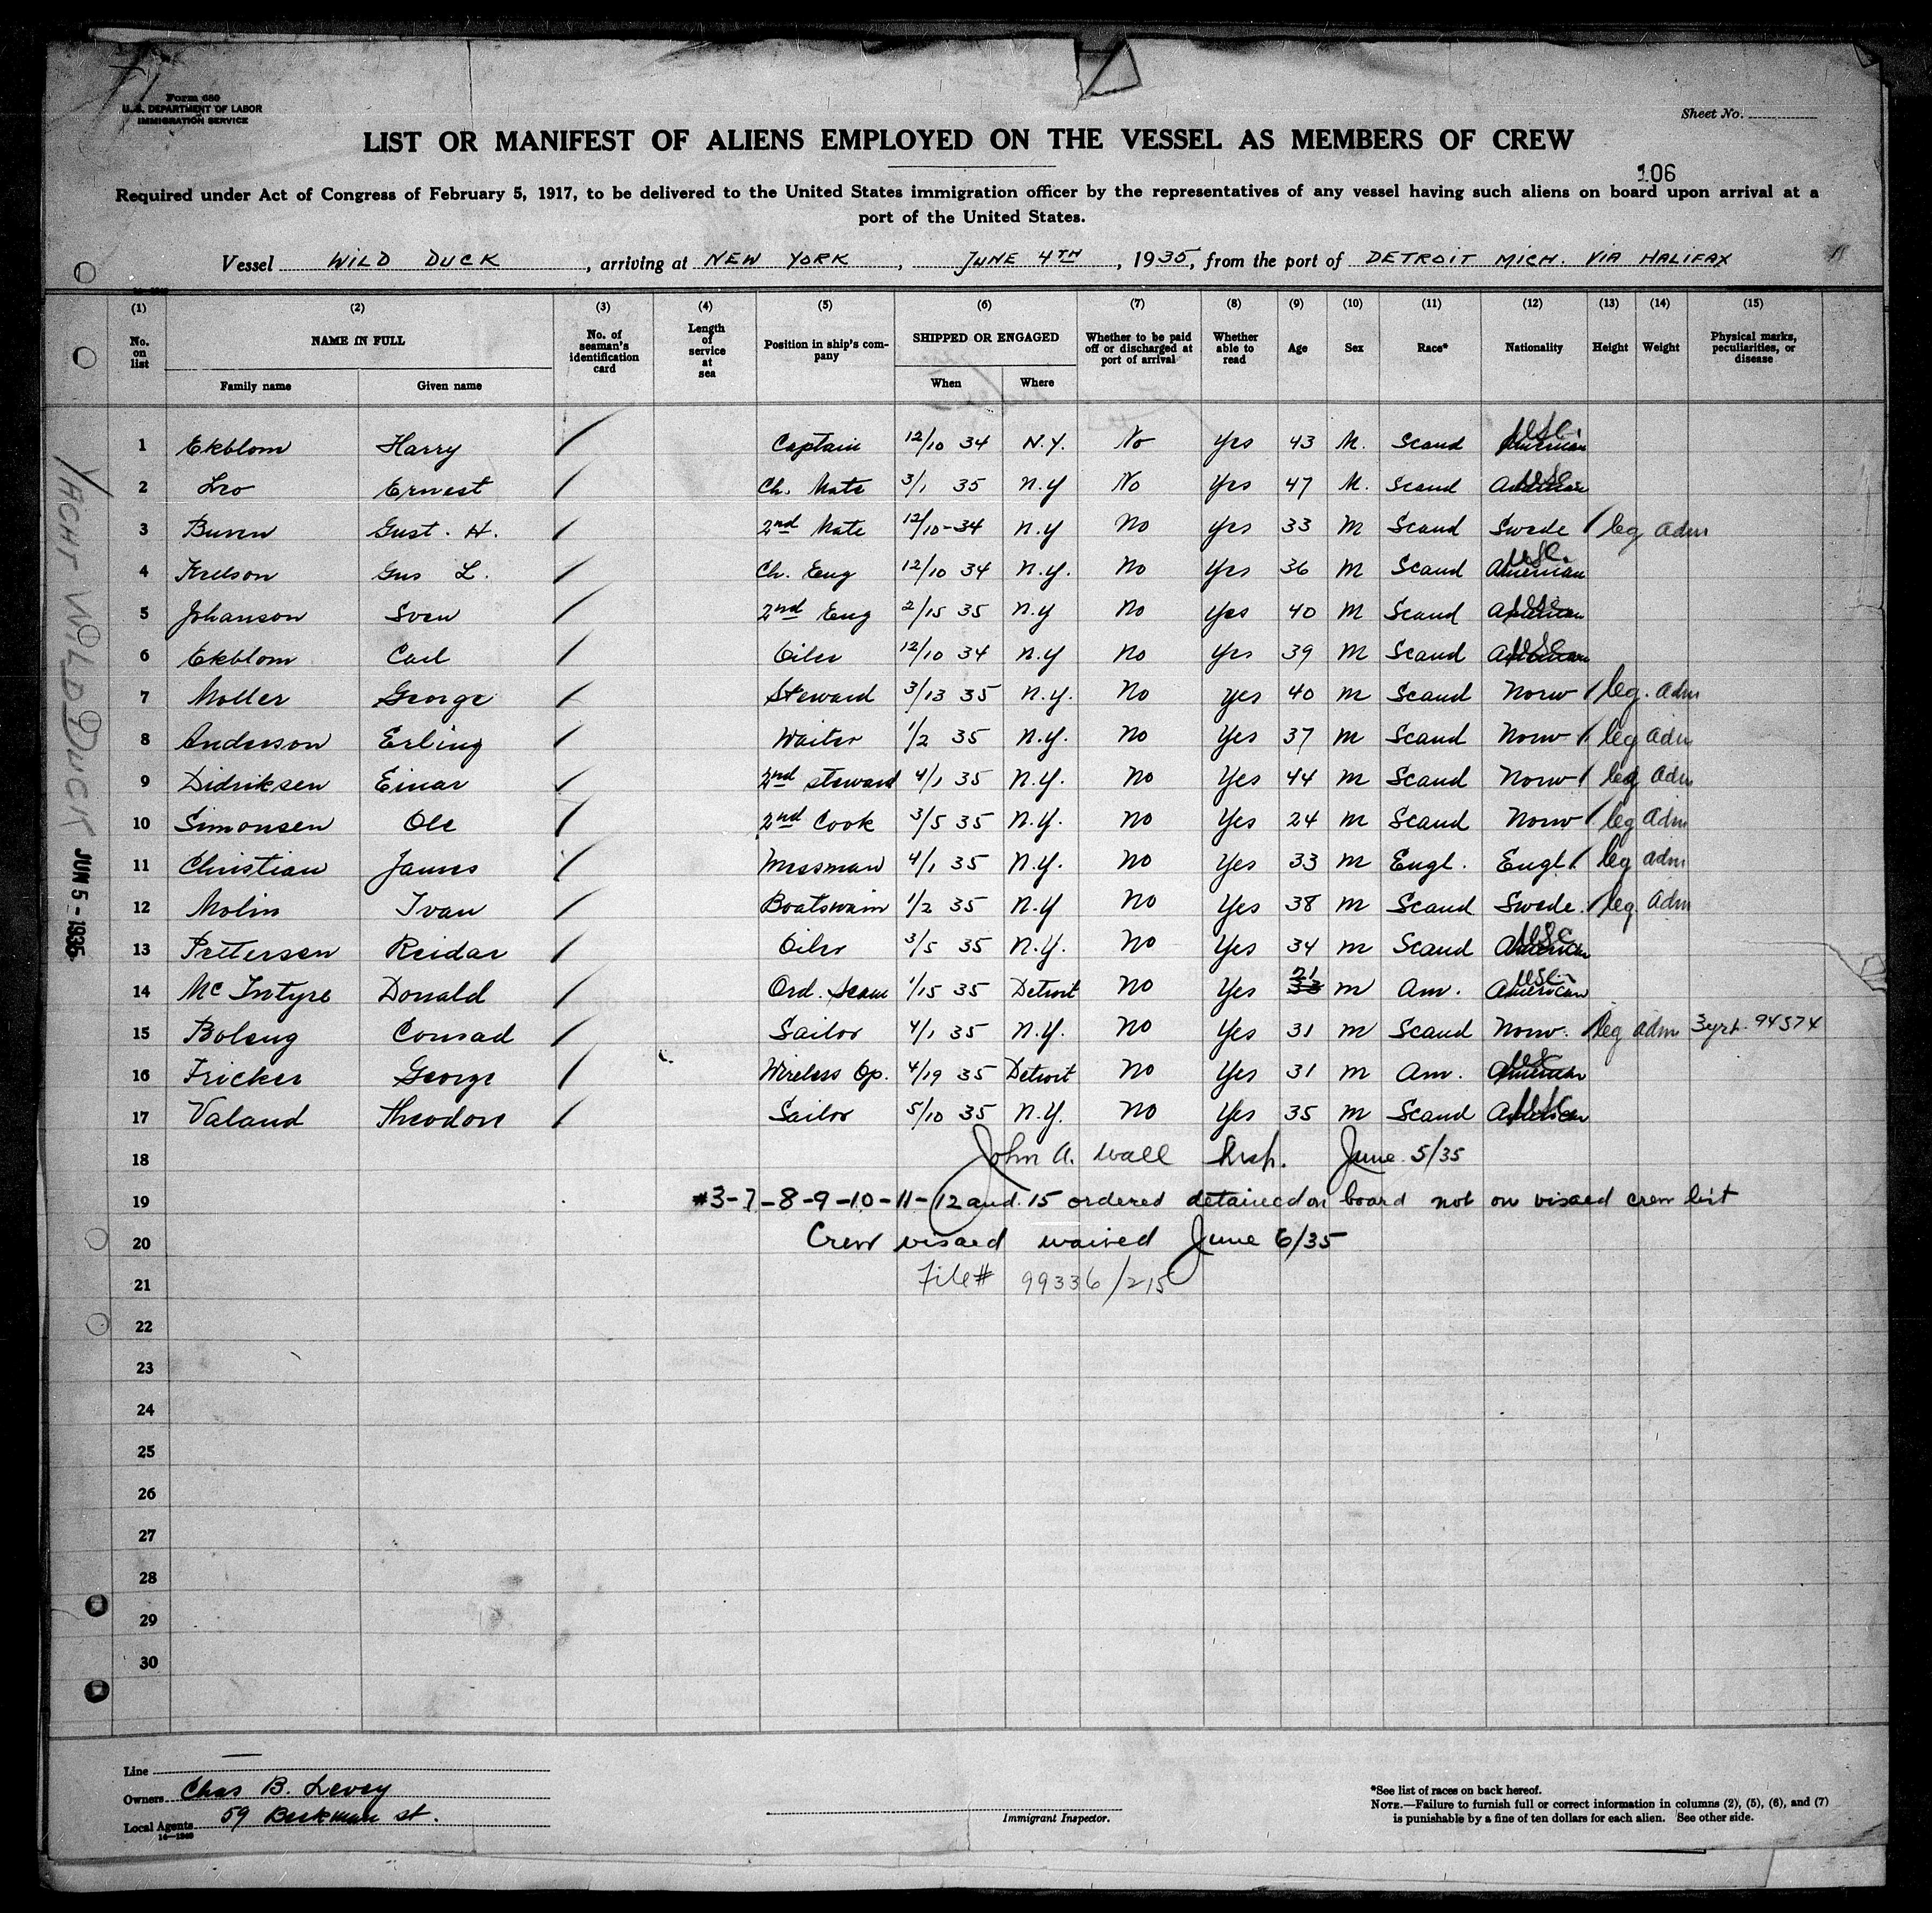 Form 680
U. S. DEPARTMENT OF LABOR
IMMIGRATION SERVICE
Sheet No.
LIST OR MANIFEST OF ALIENS EMPLOYED ON THE VESSEL AS MEMBERS OF CREW
106
Required under Act of Congress of February 5, 1917, to be delivered to the United States immigration officer by the representatives of any vessel having such aliens on board upon arrival at a
port of the United States.
Vessel WILD DUCK, arriving at NEW YORK, JUNE 4TH, 1935, from the port of DETROIT MICH. VIA HALIFAX
(1) (2) (3) (4) (5) (6) (7) (8) (9) (10) (11) (12) (13) (14) (15)
No. on list NAME IN FULL No. of seaman's identification card Length of service at sea Position in ship's company SHIPPED OR ENGAGED Whether to be paid off or discharged at port of arrival Whether able to read Age Sex Race* Nationality Height Weight Physical marks, peculiarities, or disease
Family name Given name When Where
1 Ekblom Harry Captain 12/10 34 N.Y. No Yes 43 M. Scand American USC.
2 Leo Ernest Ch. Mate 3/1 35 N.Y No Yes 47 M. Scand American USC
3 Gust. H. 2nd Mate 12/10-34 N.Y No Yes 33 M Scand Swede leg adm
4 Gus L. Ch. Eng 12/10 34 N.Y. No Yes 36 M Scand American USC.
5 Johanson Sven 2nd Eng 2/15 35 N.Y No Yes 40 M Scand American USC
6 Ekblom Carl Oiler 12/10 34 N.Y No Yes 39 M Scand American USC
7 Moller George Steward 3/13 35 N.Y. No Yes 40 M Scand Norw leg. adm
8 Anderson Erling Waiter 1/2 35 N.Y. No Yes 37 M Scand Norw leg adm
9 Didriksen Einar 2nd Steward 4/1 35 N.Y. No Yes 44 M Scand Norw leg adm
10 Simonsen Ole 2nd Cook 3/5 35 N.Y. No Yes 24 M Scand Norw leg adm
11 Christian James Messman 4/1 35 N.Y. No Yes 33 M Engl. Engl. leg adm
12 Molin Ivan Boatswain 1/2 35 N.Y No Yes 38 M Scand Swede. leg adm
13 Pettersen Reidar Oiler 3/5 35 N.Y. No Yes 34 M Scand American USC
14 Mc Intyre Donald Ord. Seam 1/15 35 Detroit No Yes 21 33 M Am. American USC
15 Conrad Sailor 4/1 35 N.Y. No Yes 31 M Scand Norw. leg adm 94574
16 Fricker George Wireless Op. 4/19 35 Detroit No Yes 31 M Am. American USC
17 Valand Theodore Sailor 5/10 35 N.Y. No Yes 35 M Scand American USC
18 John A. Wall Insp. June 5/35
19 #3-7-8-9-10-11-12 and 15 ordered detained on board not on visaed crew list
20 Crew visaed waived June 6/35
21 File# 99336/215
22
23
24
25
26
27
28
29
30
YACHT WILD DUCK JUN 5 - 1935
Line
Owners Chas B. Levey
Local Agents 59 Beekman St.
14—1240
Immigrant Inspector.
*See list of races on back hereof.
NOTE.—Failure to furnish full or correct information in columns (2), (5), (6), and (7)
is punishable by a fine of ten dollars for each alien. See other side.